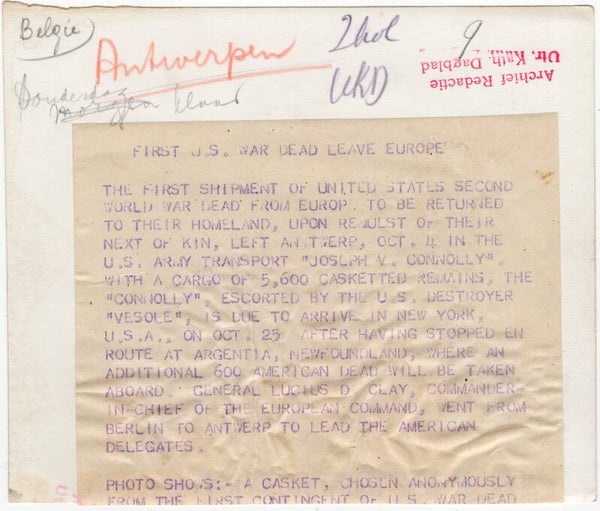 Belgie
Antwerpen
2 kol
UKD
9
Archief Redactie
Utr. Kath. Dagblad
Donderdag
morgen klaar
FIRST U.S. WAR DEAD LEAVE EUROPE
THE FIRST SHIPMENT OF UNITED STATES SECOND
WORLD WAR DEAD FROM EUROP. TO BE RETURNED
TO THEIR HOMELAND, UPON REQULST OF THEIR
NEXT OF KIN, LEFT ANTWERP, OCT. 4 IN THE
U.S. ARMY TRANSPORT "JOSLPH V. CONNOLLY".
WITH A CARGO OF 5,600 CASKETTED REMAINS, THE
"CONNOLLY", ESCORTED BY THE U.S. DESTROYER
"VESOLE", IS DUE TO ARRIVE IN NEW YORK,
U.S.A., ON OCT. 25 AFTER HAVING STOPPED EN
ROUTE AT ARGENTIA, NEWFOUNDLAND, WHERE AN
ADDITIONAL 600 AMERICAN DEAD WILL BE TAKEN
ABOARD. GENERAL LUCIUS D. CLAY, COMMANDER-
IN-CHIEF OF THE EUROPEAN COMMAND, WENT FROM
BERLIN TO ANTWERP TO LEAD THE AMERICAN
DELEGATES.
PHOTO SHOWS:- A CASKET, CHOSEN ANONYMOUSLY
FROM THE FIRST CONTINGENT OF U.S. WAR DEAD